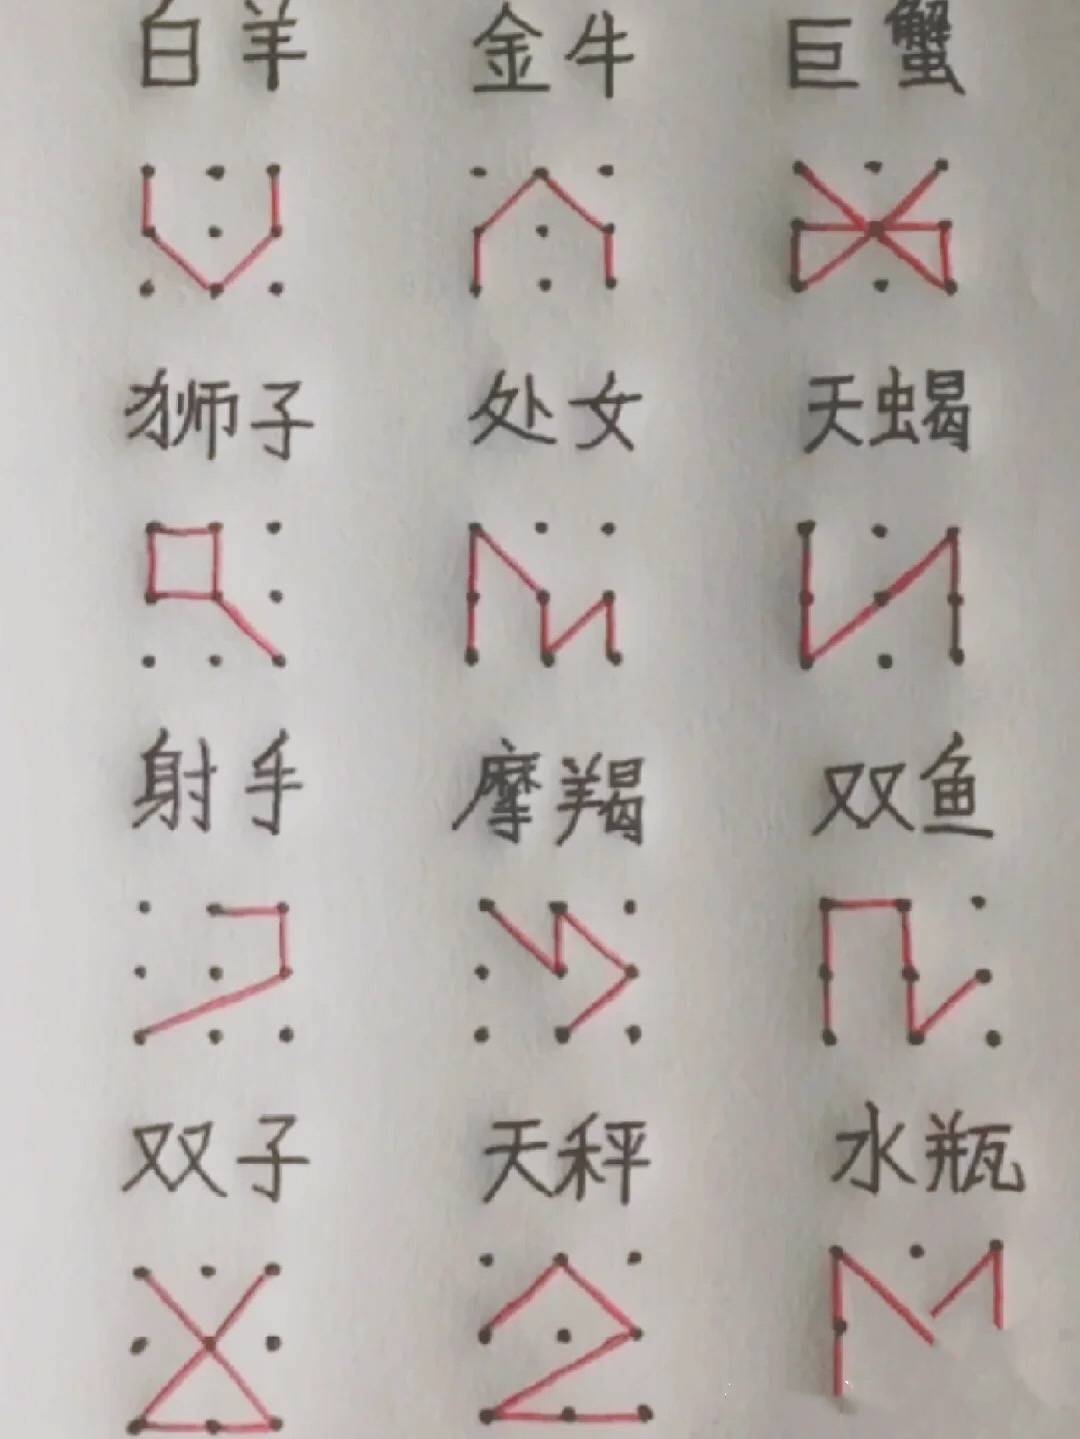 白羊 金牛 巨蟹
狮子 处女 天蝎
射手 摩羯 双鱼
双子 天秤 水瓶